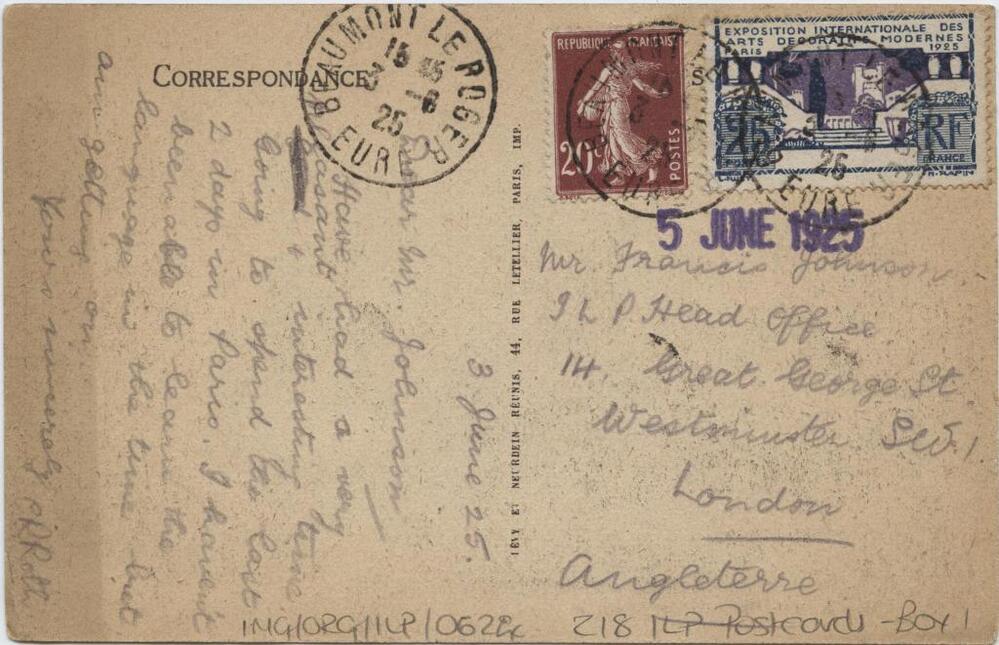 CORRESPONDANCE
BEAUMONT LE ROGER
15 45
3 - 6
25
EURE
3 June 25.
Dear Mr. Johnson
Have had a very
pleasant
& interesting time
Going to spend the last
2 days in Paris. I haven't
been able to learn the
language in the time but
am getting on.
Yours sincerely
LÉVY ET NEURDEIN RÉUNIS, 44, RUE LETELLIER, PARIS, IMP.
REPUBLIQUE FRANÇAISE
20c
POSTES
EXPOSITION INTERNATIONALE DES
ARTS DECORATIFS MODERNES
PARIS 1925
25c RF
FRANCE
H. RAPIN
25
EURE
5 JUNE 1925
Mr. Francis Johnson
I L P Head Office
14. Great George St
Westminster S.W.1
London
Angleterre
218 ILP Postcards - Box 1